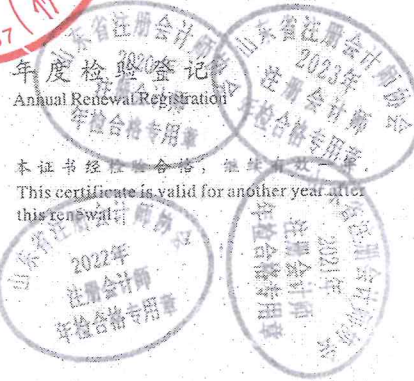 年度检验登记
Annual Renewal Registration
本证书经检验合格，继续有效一年。
This certificate is valid for another year after
this renewal.
山东省注册会计师协会
2020年
注册会计师
年检合格专用章
山东省注册会计师协会
2023年
注册会计师
年检合格专用章
山东省注册会计师协会
2022年
注册会计师
年检合格专用章
山东省注册会计师协会
2021年
注册会计师
年检合格专用章